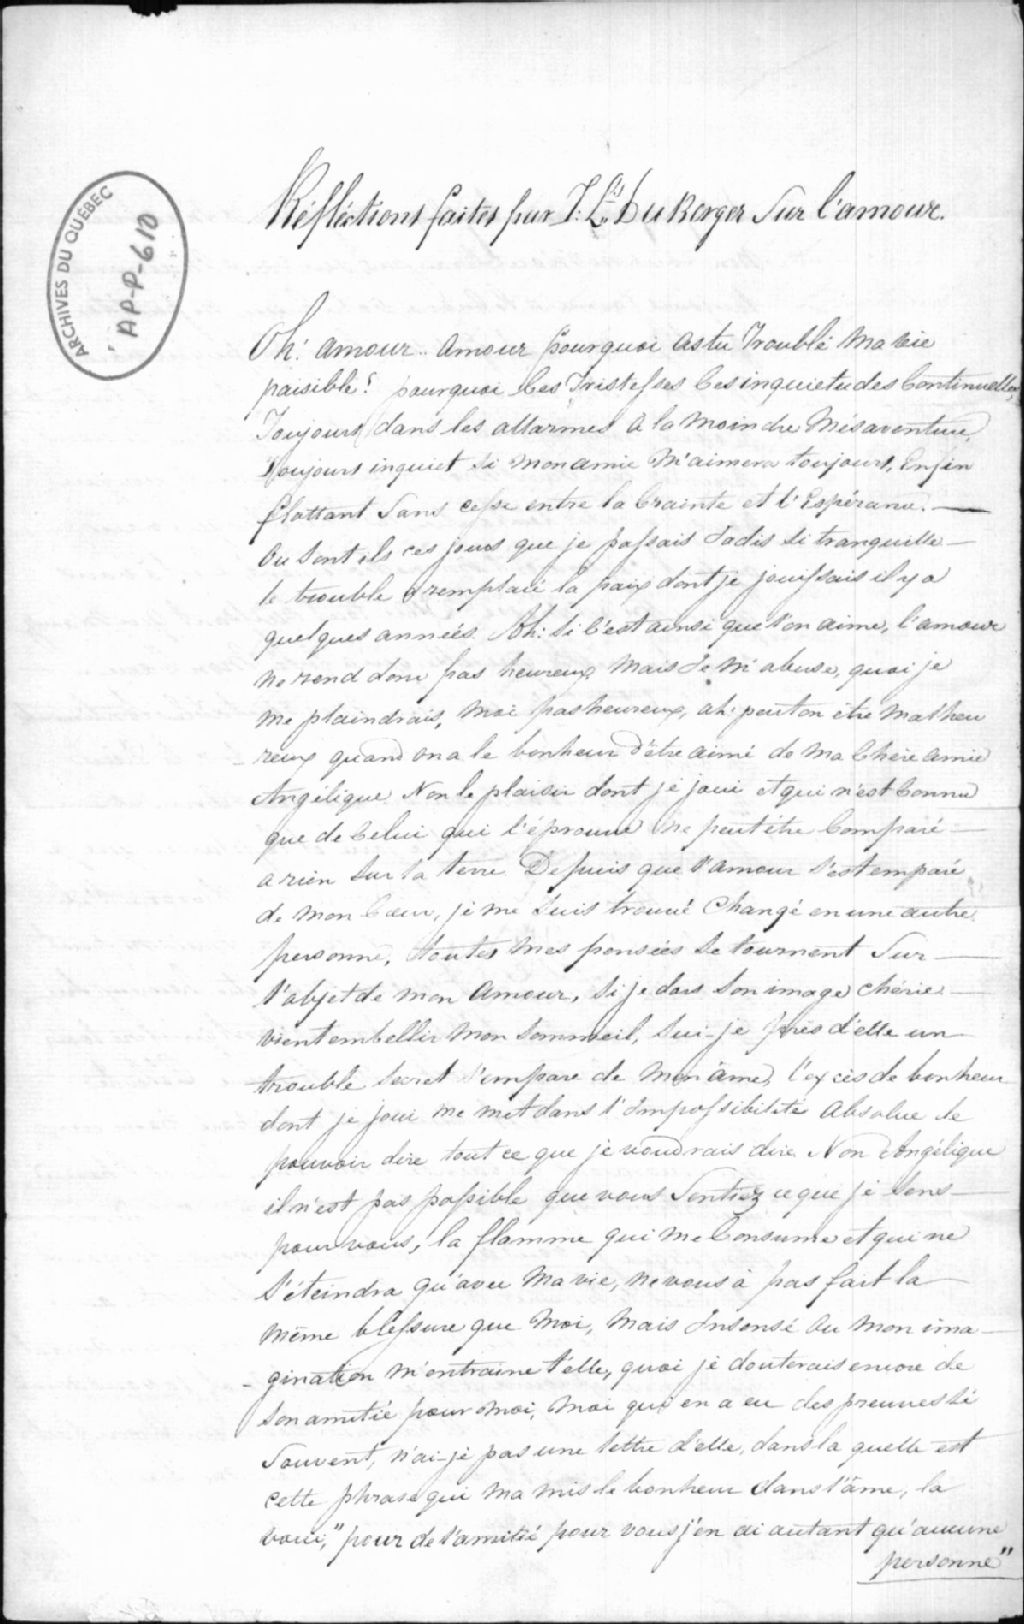 ARCHIVES DU QUÉBEC
AP-P-610
Réfléctions faites par J. Ls. DuBerger Sur l'amour.
Oh! amour.. amour pourquoi astu Troublé ma vie
paisible? pourquoi Ces Tristesses Ces inquietudes Continuelles,
Toujours dans les allarmes a la moindre Mésaventure,
Toujours inquiet si mon amie M'aimera toujours, Enfin
flottant Sans cesse entre la Crainte et l'Espérance. —
Ou Sont ils ces jours que je passais Jadis Si tranquille —
le trouble a remplacé la paix dont je jouissais il y a
quelques années. Ah! Si C'est ainsi que l'on aime, l'amour
ne rend donc pas heureux, Mais Je M'abuse, quoi je
me plaindrais, Moi pas heureux, ah! peut on être Malheu
- reux quand on a le bonheur d'être aimé de Ma Chère amie
Angélique Non le plaisir dont je joui et qui n'est Connu
que de Celui qui l'éprouve ne peut être Comparé —
a rien Sur la terre Depuis que l'amour S'est emparé
de mon Cœur, je me Suis trouvé Changé en une autre
personne, toutes mes pensées Se tournent Sur —
l'objet de mon Amour, Si je dors Son image Chérie —
vient embellir Mon Sommeil, Sui-je près d'elle un
trouble Secret S'empare de Mon âme, l'excès de bonheur
dont je joui me met dans l'Impossibilité absolue de
pouvoir dire tout ce que je voudrais dire Non Angélique
il n'est pas possible que vous Sentiez ce que je Sens —
pour vous, la flamme qui Me Consume et qui ne
S'éteindra qu'avec Ma vie, ne vous à pas fait la —
Même blessure que Moi, Mais Insensé Ou Mon ima —
- gination M'entraine t'elle, quoi je douterais encore de
Son amitié pour moi, Moi qui en a eu des preuves Si
Souvent, n'ai-je pas une lettre d'elle, dans la quelle est
cette phrase qui Ma mis le bonheur dans l'âme, la
voici, "pour de l'amitié pour vous j'en ai autant qu'aucune
personne"